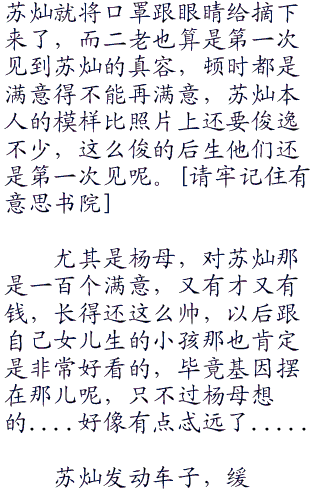 苏灿就将口罩跟眼睛给摘下
来了，而二老也算是第一次
见到苏灿的真容，顿时都是
满意得不能再满意，苏灿本
人的模样比照片上还要俊逸
不少，这么俊的后生他们还
是第一次见呢。[请牢记住有
意思书院]
尤其是杨母，对苏灿那
是一百个满意，又有才又有
钱，长得还这么帅，以后跟
自己女儿生的小孩那也肯定
是非常好看的，毕竟基因摆
在那儿呢，只不过杨母想
的....好像有点忒远了.....
苏灿发动车子，缓